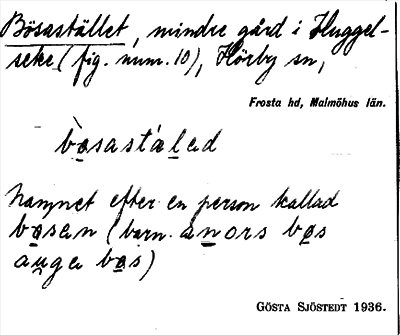 Bösastället, mindre gård i Huggel-
seke (fig. num. 10), Hörby sn,
Frosta hd, Malmöhus län.
bo̱sastaled
namnet efter en person kallad
bo̱sen (barn. anors bo̱s
auga bo̱s)
GÖSTA SJÖSTEDT 1936.